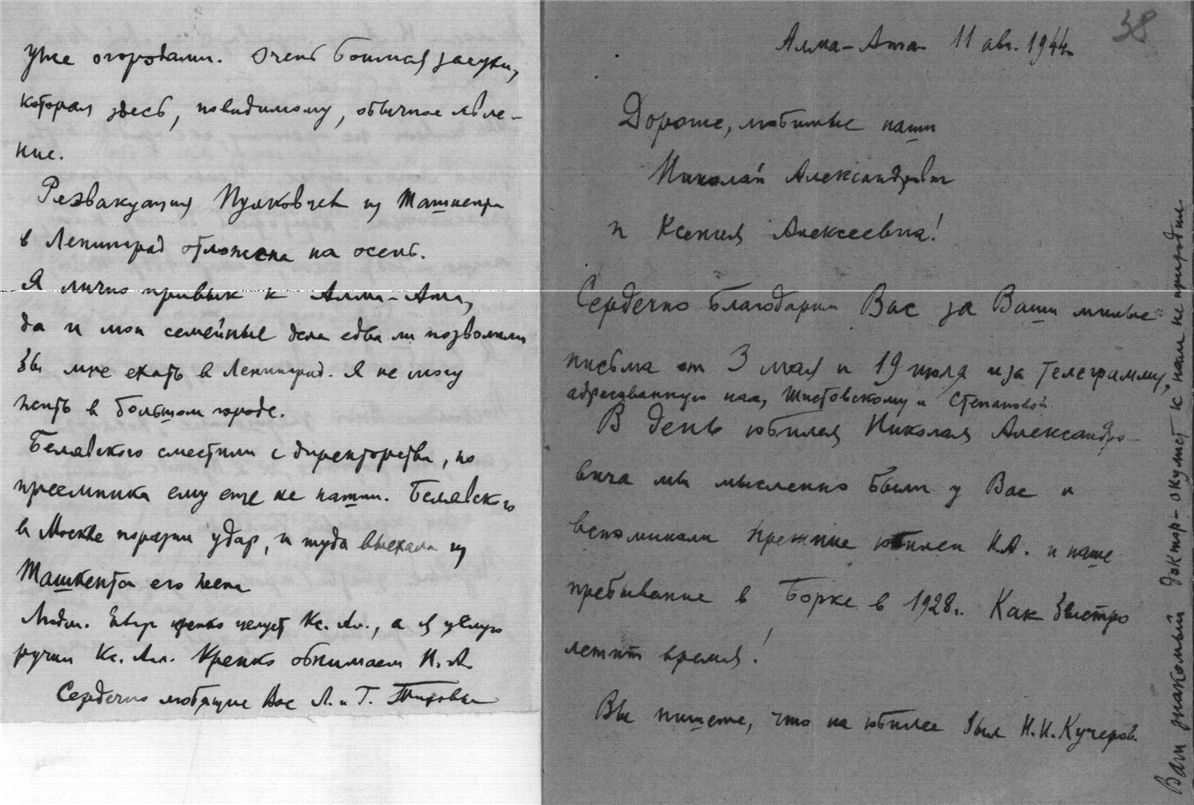 38
Алма-Ата 11 авг. 1944
Дорогие, любимые наши
Николай Александрович
и Ксения Алексеевна!
Сердечно благодарим Вас за Ваши милые
письма от 3 мая и 19 июля и за телеграмму,
адресованную нам, Шистовскому и Степановой.
В день юбилея Николая Александро-
вича мы мысленно были у Вас и
вспоминали прежние юбилеи Н.А. и наше
пребывание в Борке в 1928 г. Как быстро
летит время!
Вы пишете, что на юбилее был Н.И. Кучеров.
Ваш знакомый доктор-окулист к нам не приходил
уже огородами. Очень боимся засухи,
которая здесь, повидимому, обычное явле-
ние.
Реэвакуация Пулковцев из Ташкента
в Ленинград отложена на осень.
Я лично привык к Алма-Ата,
да и мои семейные дела едва ли позволили
бы мне ехать в Ленинград. Я не могу
жить в большом городе.
Белявского сместили с директорства, но
преемника ему еще не нашли. Белявского
в Москве поразил удар, и туда выехала из
Ташкента его жена
Людм. Евгр крепко целует Кс. Ал., а я целую
ручки Кс. Ал. Крепко обнимаем Н. А
Сердечно любящие Вас Л. и Г. Тиховы